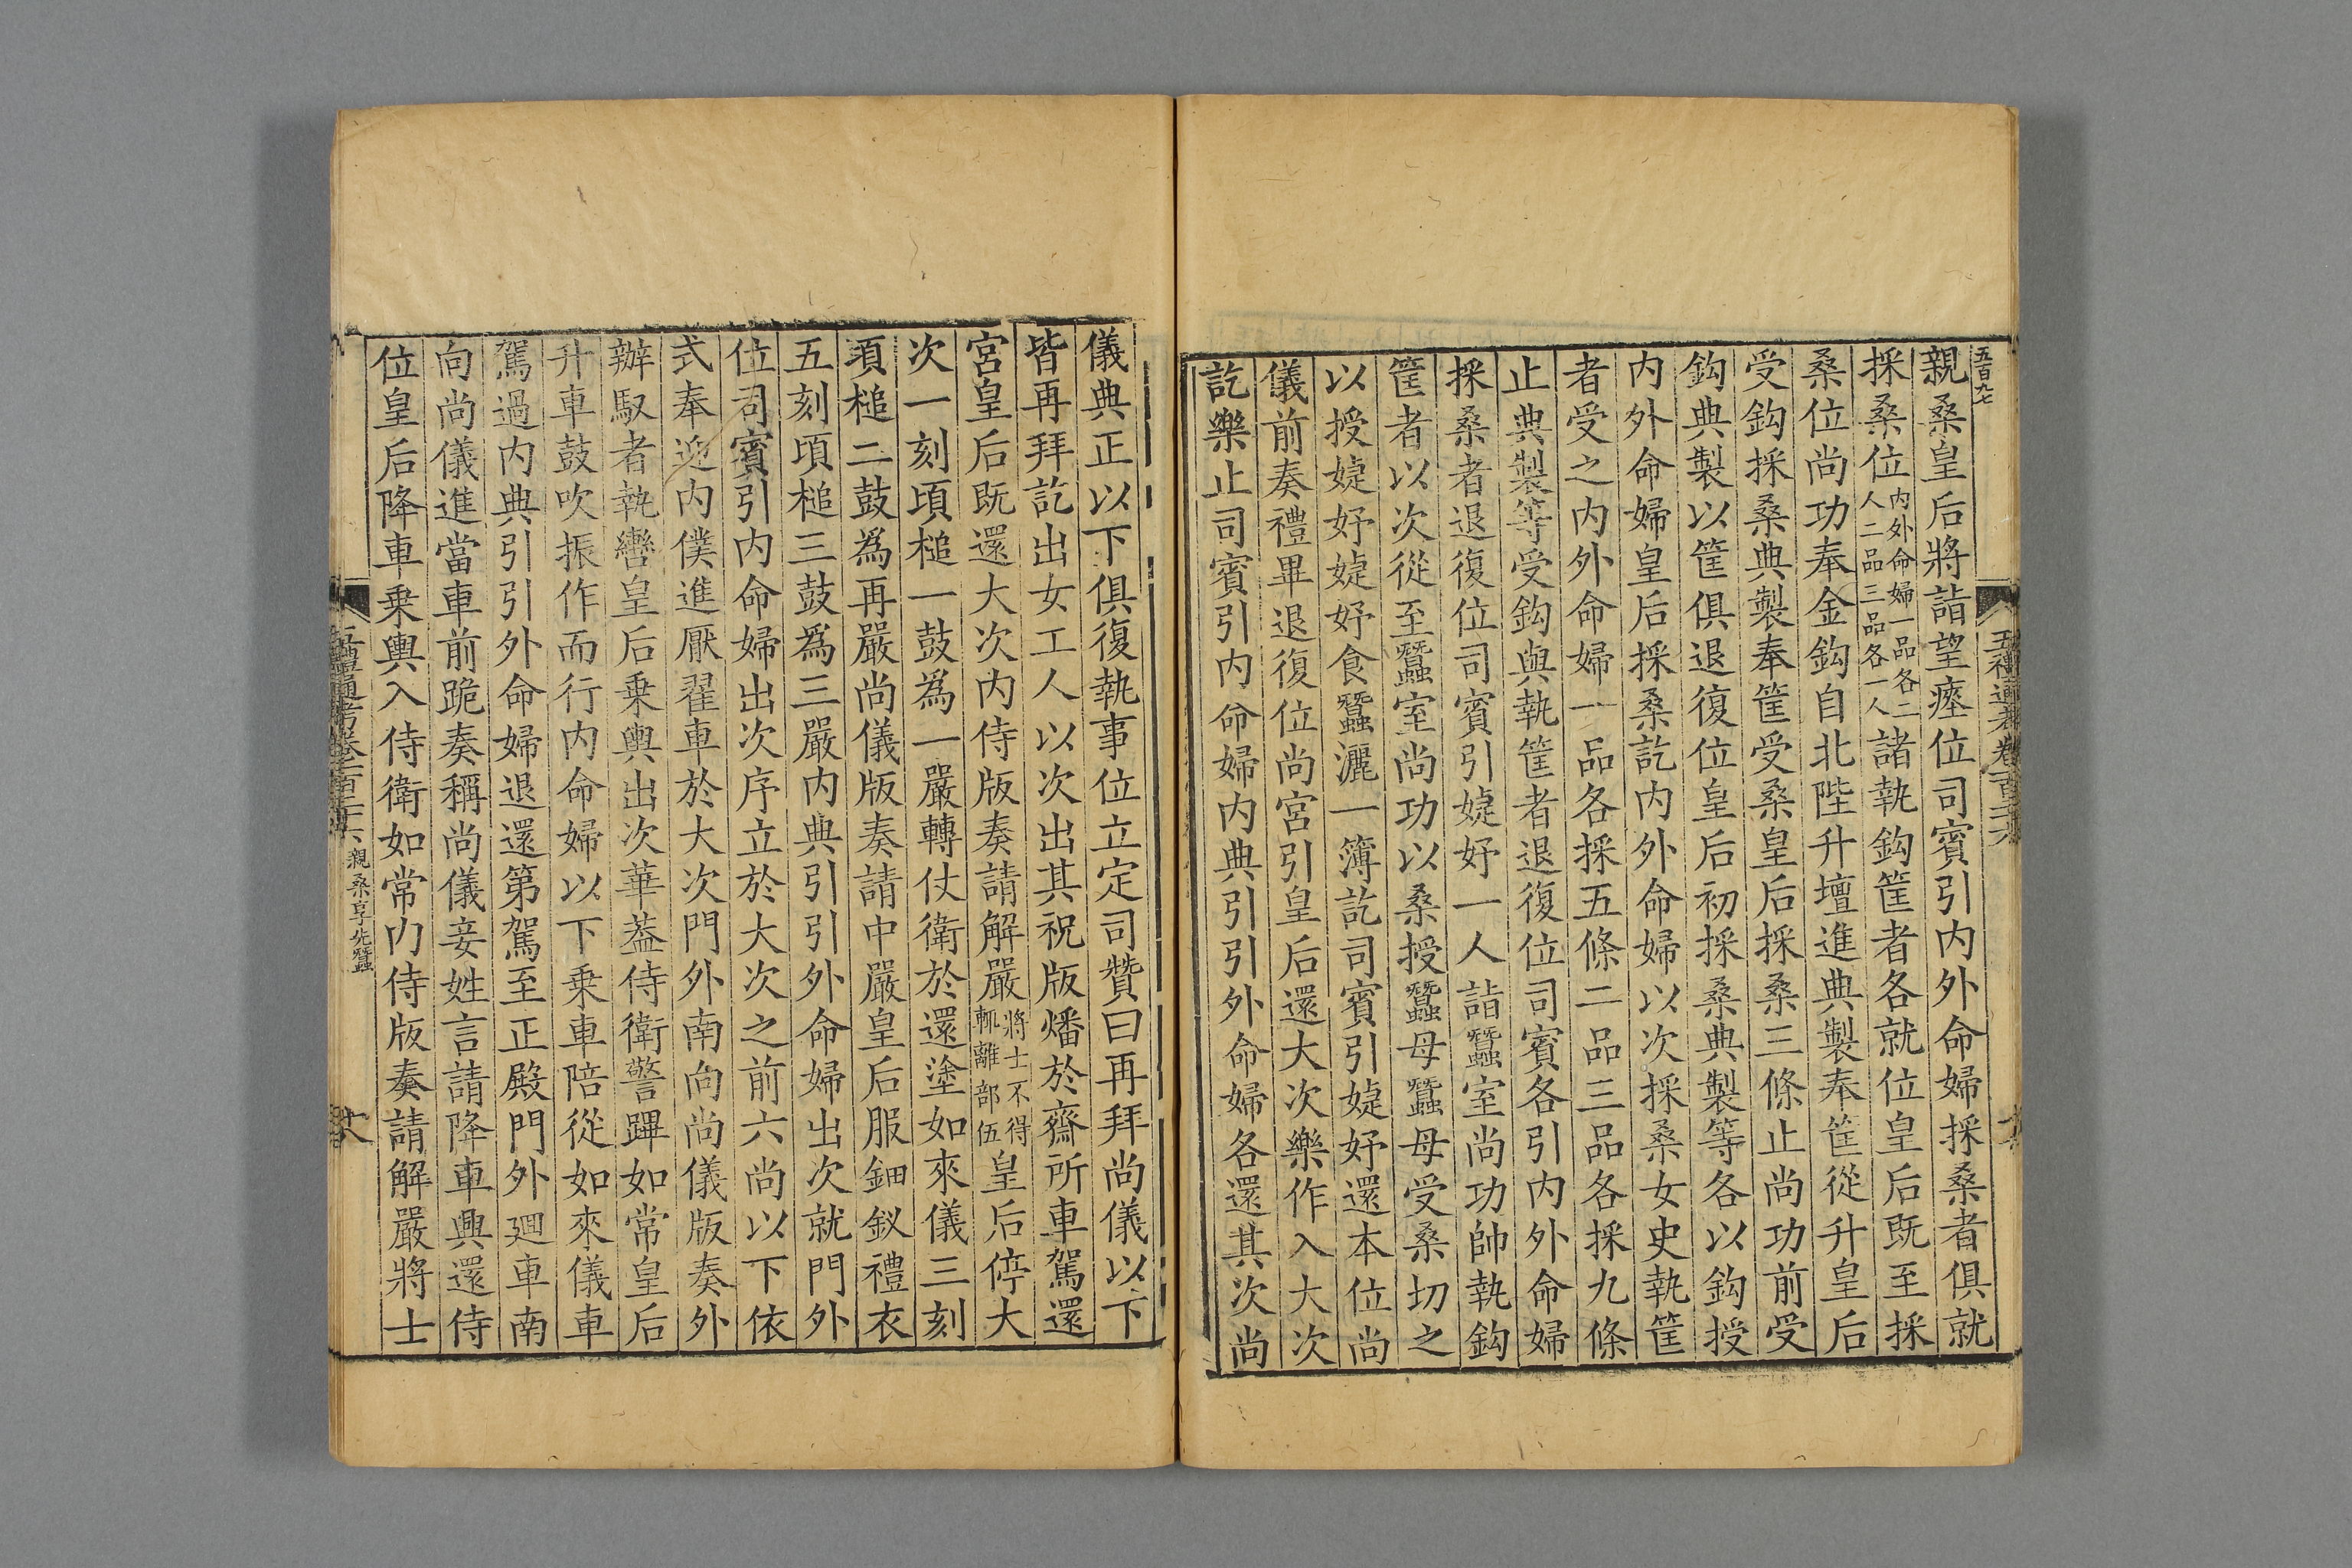 五百九七
親桑皇后將詣望瘞位司賓引内外命婦採桑者俱就
採桑位内外命婦一品各二人二品三品各一人諸執鈎筐者各就位皇后既至採
桑位尚功奉金鈎自北陛升壇進典製奉筐從升皇后
受鈎採桑典製奉筐受桑皇后採桑三條止尚功前受
鈎典製以筐俱退復位皇后初採桑典製等各以鈎授
内外命婦皇后採桑訖内外命婦以次採桑女史執筐
者受之内外命婦一品各採五條二品三品各採九條
止典製等受鈎與執筐者退復位司賓各引内外命婦
採桑者退復位司賓引婕妤一人詣蠶室尚功帥執鈎
筐者以次從至蠶室尚功以桑授蠶母蠶母受桑切之
以授婕妤婕妤食蠶灑一簿訖司賓引婕妤還本位尚
儀前奏禮畢退復位尚宮引皇后還大次樂作入大次
訖樂止司賓引内命婦内典引引外命婦各還其次尚
儀典正以下俱復執事位立定司贊曰再拜尚儀以下
皆再拜訖出女工人以次出其祝版燔於齋所車駕還
宮皇后既還大次内侍版奏請解嚴將士不得輒離部伍皇后停大
次一刻頃槌一鼓為一嚴轉仗衛於還塗如來儀三刻
頃槌二鼓為再嚴尚儀版奏請中嚴皇后服鈿釵禮衣
五刻頃槌三鼓為三嚴内典引引外命婦出次就門外
位司賓引内命婦出次序立於大次之前六尚以下依
式奉迎内僕進厭翟車於大次門外南向尚儀版奏外
辦馭者執轡皇后乗輿出次華蓋侍衛警蹕如常皇后
升車鼓吹振作而行内命婦以下乗車陪從如來儀車
駕過内典引引外命婦退還第駕至正殿門外迴車南
向尚儀進當車前跪奏稱尚儀妾姓言請降車興還侍
位皇后降車乗輿入侍衛如常内侍版奏請解嚴將士
親桑享先蠶